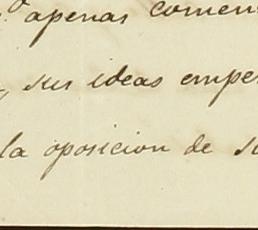 apenas comen
, sus ideas empe
la oposicion de s